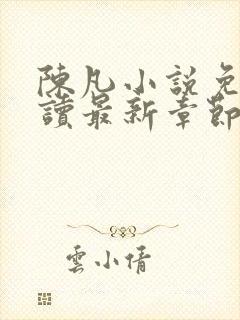 陳凡小說免
讀最新章節
雲小倩